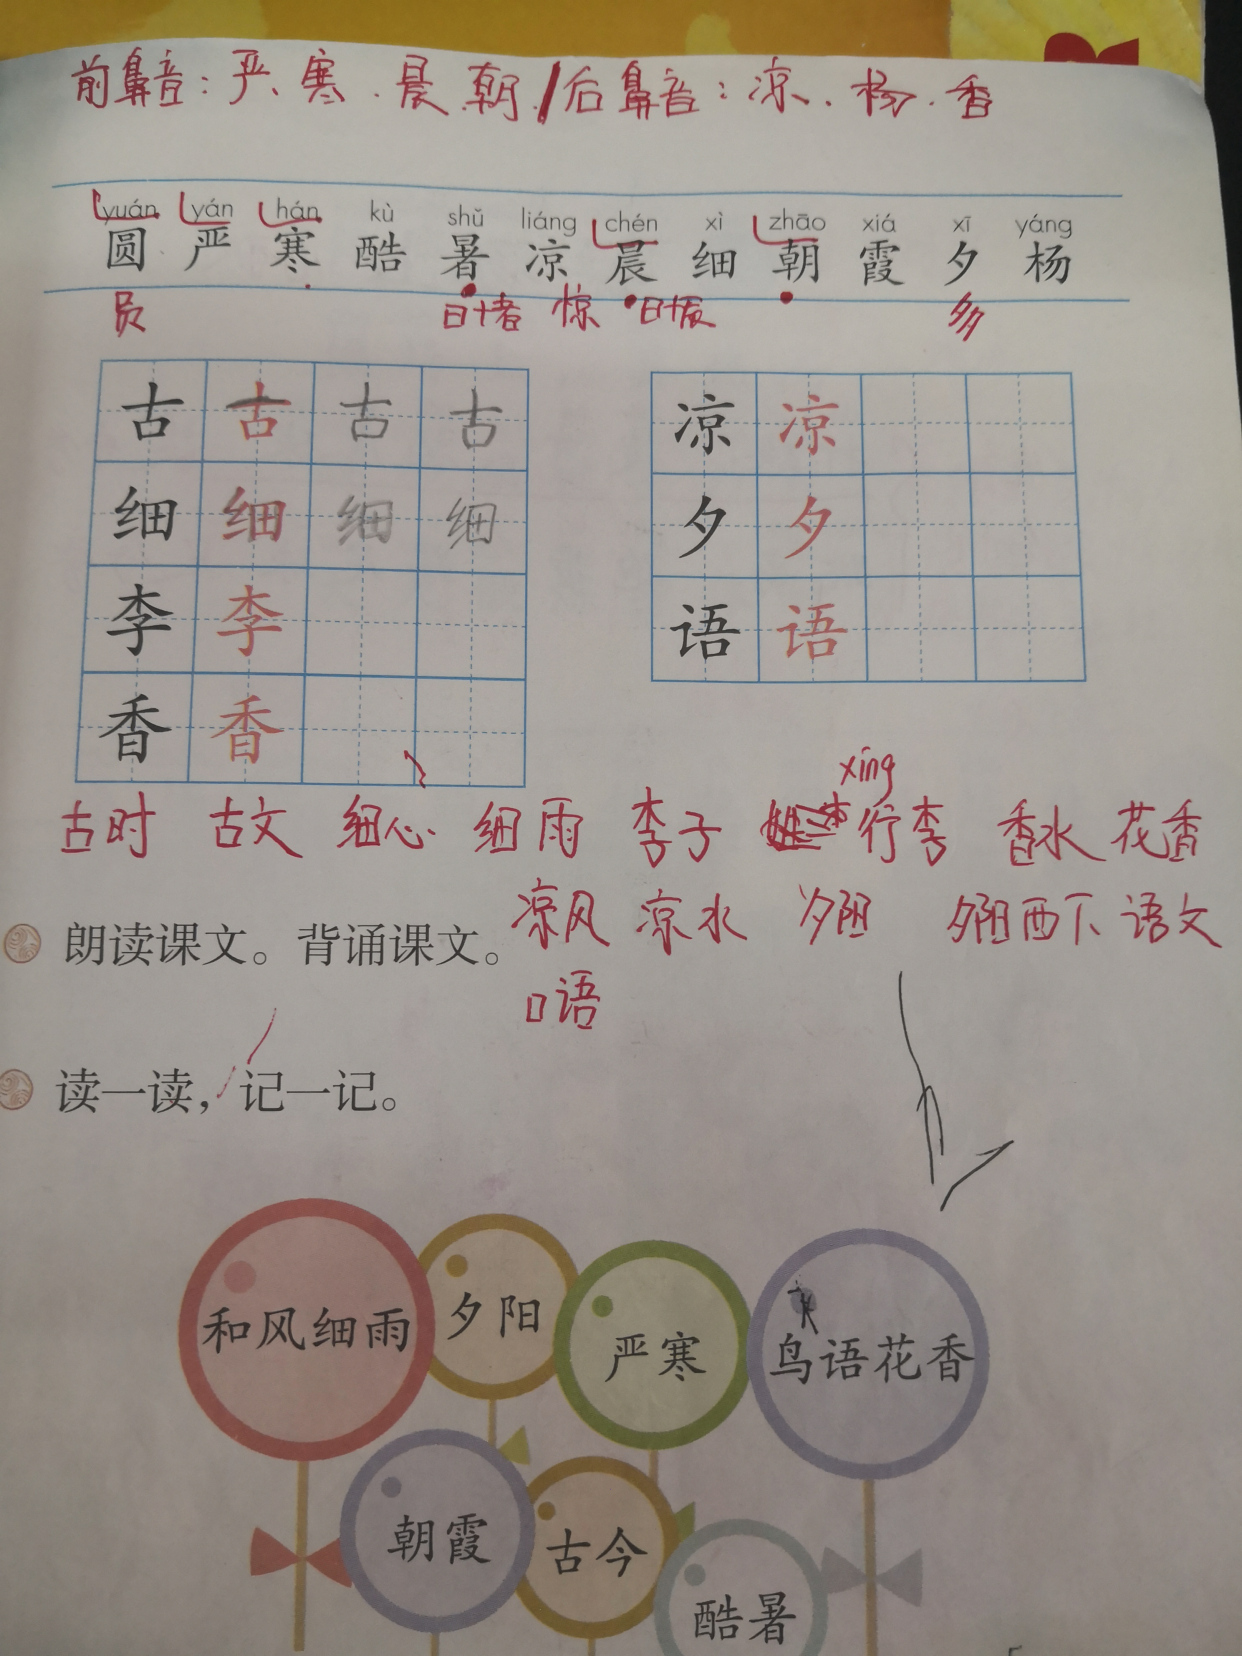 前鼻音：严、寒、晨、朝/后鼻音：凉、杨、香
yuán yán hán kù shǔ liáng chén xì zhāo xiá xī yáng
圆 严 寒 酷 暑 凉 晨 细 朝 霞 夕 杨
员 日+者 惊 日+辰 多
古 古 古 古 凉 凉
细 细 细 细 夕 夕
李 李 语 语
香 香
xíng
古时 古文 细心 细雨 李子 行李 香水 花香
凉风 凉水 夕阳 夕阳西下 语文
朗读课文。背诵课文。
口语
读一读，记一记。
和风细雨 夕阳 严寒 鸟语花香
朝霞 古今 酷暑